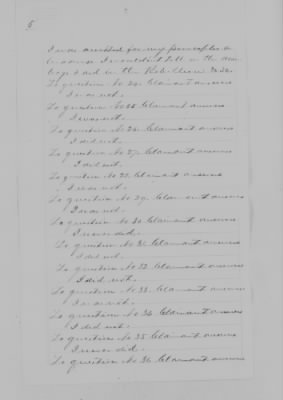 5
I was arrested for my principles &
because I wouldn't fall in the
and in the Reb.
To question No 24. Claimant answers
I was not.
To question No 25 Claimant answers
I was not.
To question No 26. Claimant answers
I did not.
To question No 27. Claimant answers
I did not.
To question No 28. Claimant answers
I was not.
To question No 29. Claimant answers
I was not.
To question No 30 Claimant answers
I never did.
To question No 31. Claimant answers
I did not.
To question No 32. Claimant answers
I did not.
To question No 33. Claimant answers
I was not.
To question No 34. Claimant answers
I did not.
To question No 35 Claimant answers
I never did.
To question No 36. Claimant answers